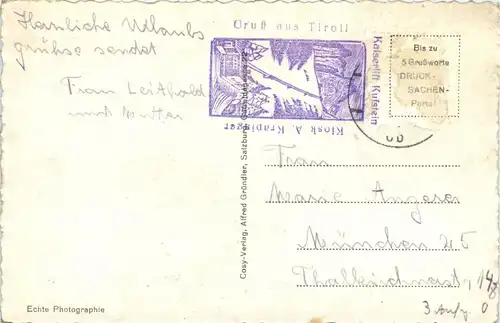 Herzliche Urlaubs
grüße sendet
Frau Leithold
und Mutter
Gruß aus Tirol!
Kaiserlift Kufstein
Kiosk A. Krapinger
Bis zu
5 Grußworte
DRUCK-
SACHEN-
Porto!
Cosy-Verlag, Alfred Gründler, Salzburg
Frau
Marie Angerer
München 25
3 Aufg.
Echte Photographie